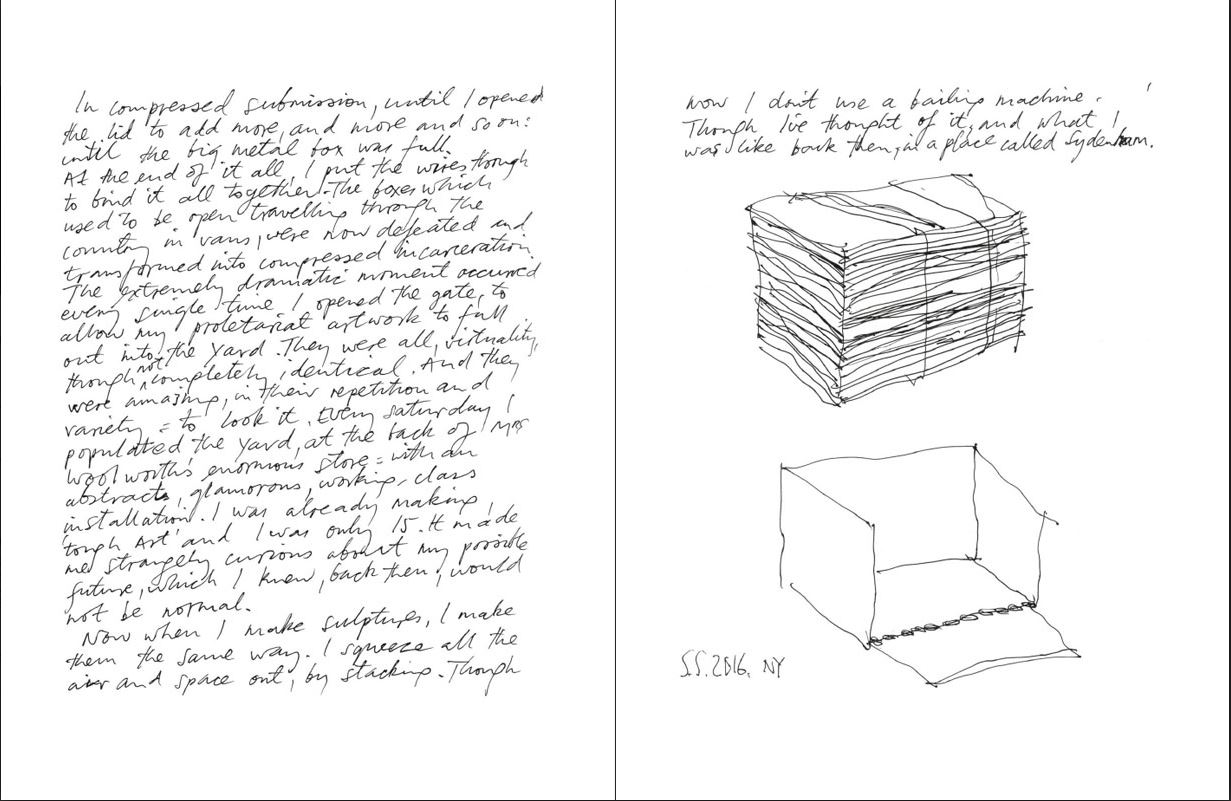 In compressed submission, until I opened
the lid to add more, and more and so on:
until the big metal box was full.
At the end of it all, I put the wires through
to bind it all together. The boxes which
used to be open travelling through the
country in vans, were now defeated and
transformed into compressed incarceration.
The extremely dramatic moment occurred
every single time I opened the gate, to
allow my proletariat artwork to fall
out into the yard. They were all, virtuality,
though not completely identical. And they
were amazing, in their repetition and
variety = to look it. Every saturday I
populated the yard, at the back of Mrs
Woolworth's enormous store = with an
abstract, glamorous, working-class
installation. I was already making
'tough Art' and I was only 15. It made
me strangely curious about my possible
future, which I knew, back then, would
not be normal.
Now when I make sulptures, I make
them the same way. I squeeze all the
air and space out, by stacking. Though
now I don't use a bailing machine.
Though I've thought of it, and what I
was like back then, in a place called Sydenham.
S.S. 2016. NY